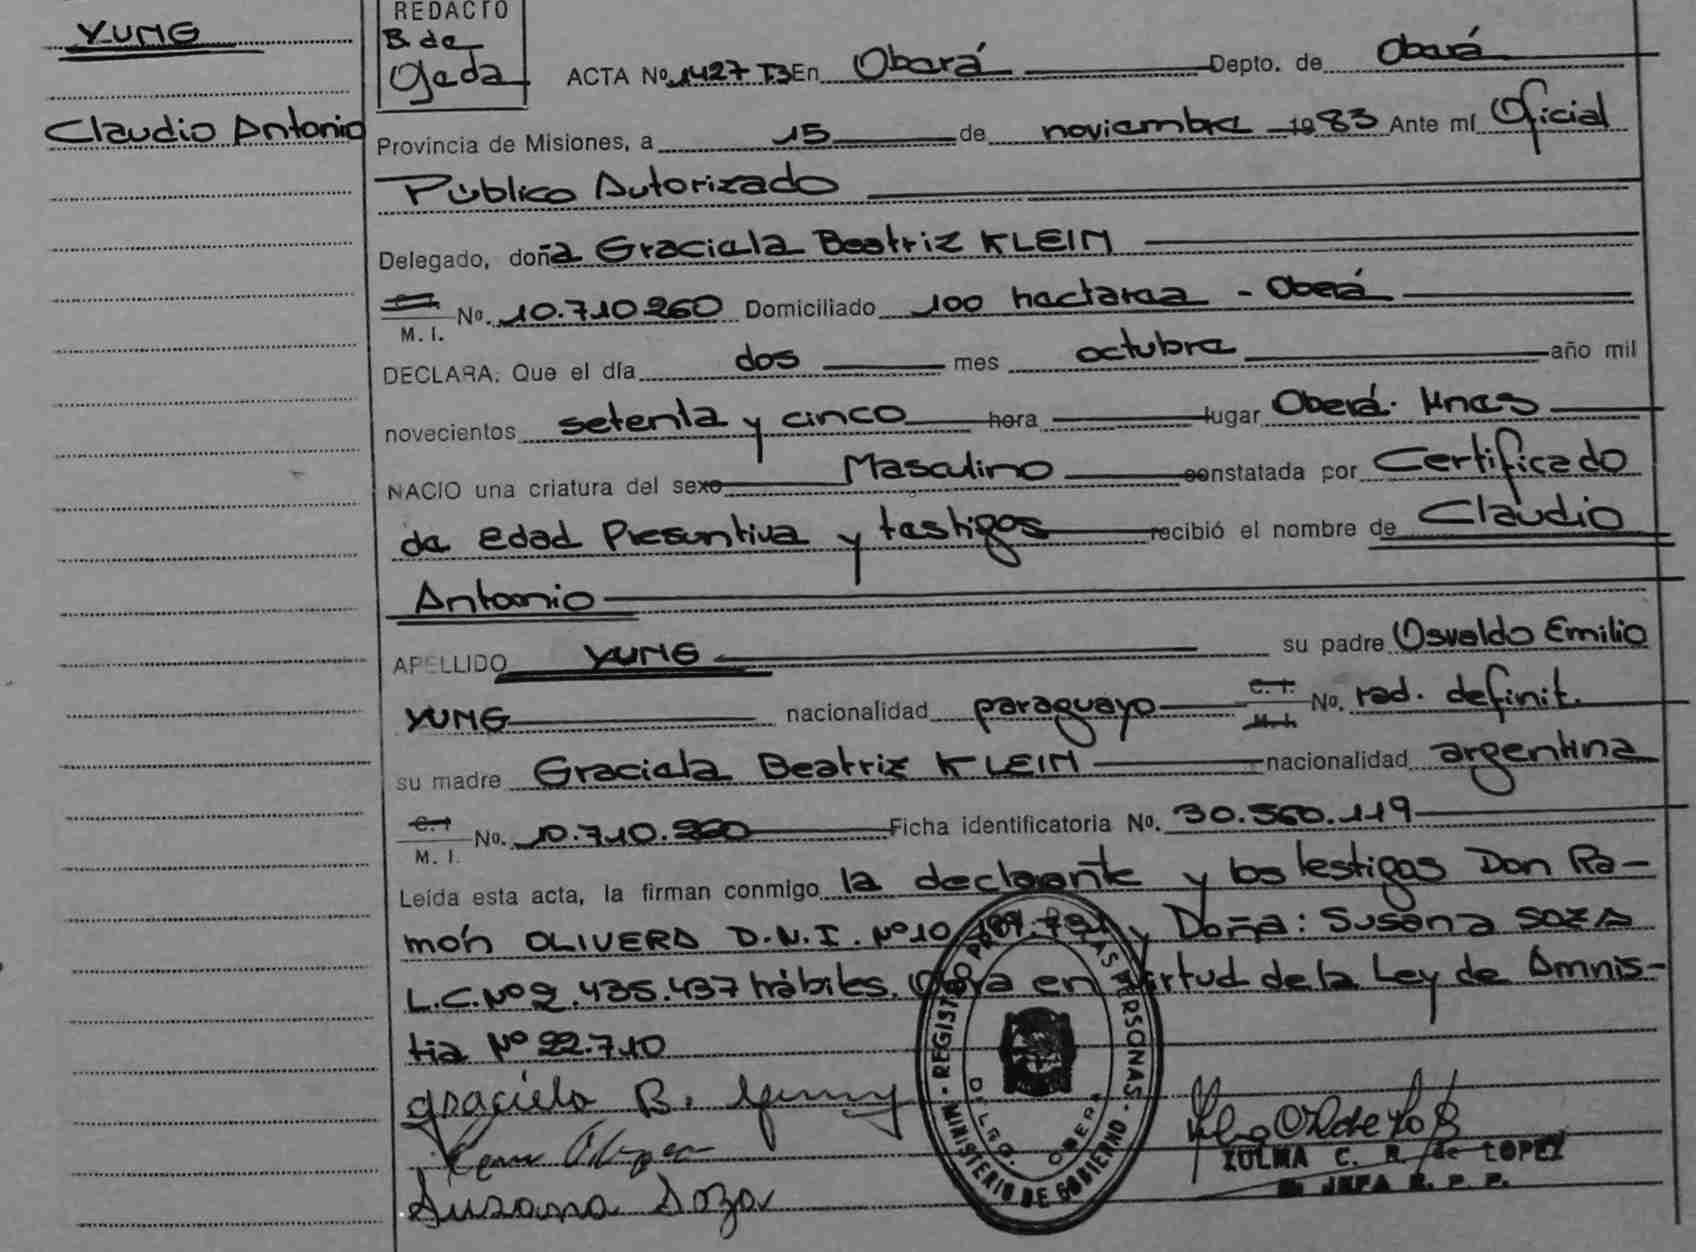 YUNG
Claudio Antonio
REDACTO
B. de
Ojeda
ACTA No. 1427 T.3 En Oberá Depto. de Oberá
Provincia de Misiones, a 15 de noviembre 1983 Ante mí Oficial
Público Autorizado
Delegado, doña Graciela Beatriz KLEIN
M. I. No. 10.710.260 Domiciliado 100 hectarea - Oberá
DECLARA: Que el día dos mes octubre año mil
novecientos setenta y cinco hora lugar Oberá. Mnes
NACIO una criatura del sexo Masculino constatada por Certificado
de edad Presuntiva y testigos recibió el nombre de Claudio
Antonio
APELLIDO YUNG su padre Osvaldo Emilio
YUNG nacionalidad paraguayo C. I. M. I. No. rad. definit.
su madre Graciela Beatriz KLEIN nacionalidad argentina
C. I. M. I. No. 10.710.260 Ficha identificatoria No. 30.560.119
Leída esta acta, la firman conmigo la declarante y los testigos Don Ra-
món OLIVERA D.N.I. Nº 10 y Doña: Susana SOZA
L.C. Nº 2.435.437 hábiles. en virtud de la Ley de Amnis-
tia Nº 22.710
Graciela B.
Susana Soza
MINISTERIO DE GOBIERNO - REGISTRO PERSONAS -
DLGO. OBERA
ZULMA C. R. de LOPEZ
JEFA R. P. P.